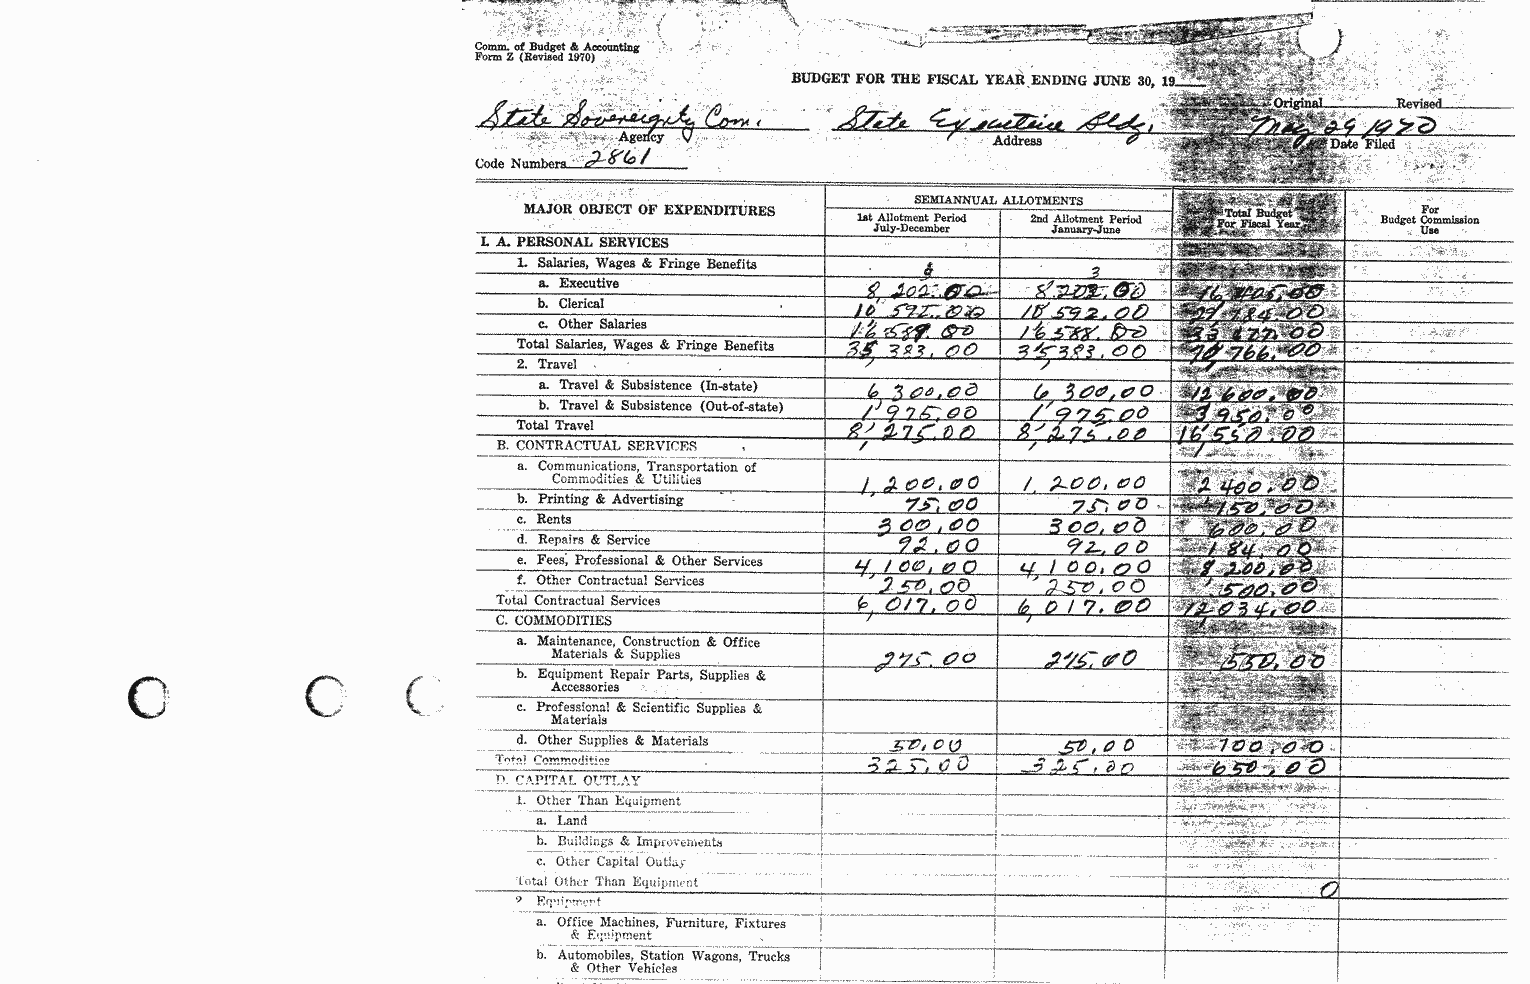 Comm. of Budget & Accounting
Form Z (Revised 1970)
BUDGET FOR THE FISCAL YEAR ENDING JUNE 30, 19
Original Revised
State Sovereignty Com. State Executive Bldg. May 29 1970
Agency Address Date Filed
Code Numbers 2861
MAJOR OBJECT OF EXPENDITURES
SEMIANNUAL ALLOTMENTS
1st Allotment Period July-December
2nd Allotment Period January-June
Total Budget For Fiscal Year
For Budget Commission Use
I. A. PERSONAL SERVICES
1. Salaries, Wages & Fringe Benefits
a. Executive
b. Clerical 10,592.00 10,592.00
c. Other Salaries 16,588.00
Total Salaries, Wages & Fringe Benefits 35,383.00 35,383.00 70,766.00
2. Travel
a. Travel & Subsistence (In-state) 6,300.00 6,300.00 12,600.00
b. Travel & Subsistence (Out-of-state) 1,975.00 1,975.00 3,950.00
Total Travel 8,275.00 8,275.00 16,550.00
B. CONTRACTUAL SERVICES
a. Communications, Transportation of
Commodities & Utilities 1,200.00 1,200.00 2,400.00
b. Printing & Advertising 75.00 75.00 150.00
c. Rents 300.00 300.00 600.00
d. Repairs & Service 92.00 92.00 184.00
e. Fees, Professional & Other Services 4,100.00 4,100.00 8,200.00
f. Other Contractual Services 250.00 250.00 500.00
Total Contractual Services 6,017.00 6,017.00 12,034.00
C. COMMODITIES
a. Maintenance, Construction & Office
Materials & Supplies 275.00 275.00 550.00
b. Equipment Repair Parts, Supplies &
Accessories
c. Professional & Scientific Supplies &
Materials
d. Other Supplies & Materials 50.00 50.00 100.00
Total Commodities 325.00 325.00 650.00
D. CAPITAL OUTLAY
1. Other Than Equipment
a. Land
b. Buildings & Improvements
c. Other Capital Outlay
Total Other Than Equipment 0
2 Equipment
a. Office Machines, Furniture, Fixtures
& Equipment
b. Automobiles, Station Wagons, Trucks
& Other Vehicles